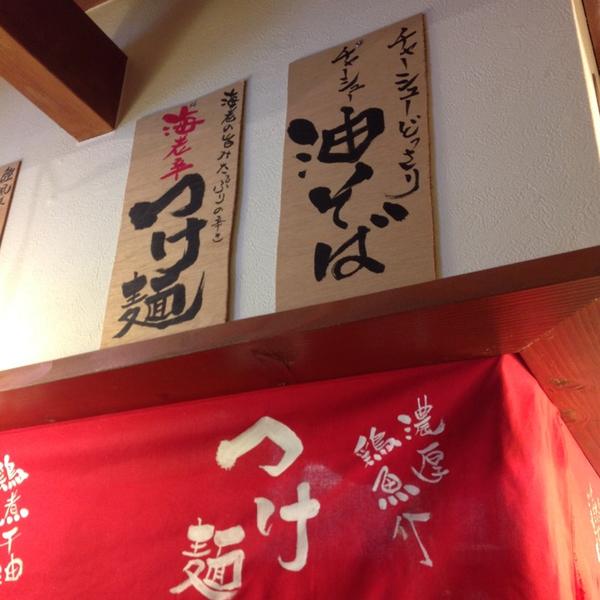 チャーシューどっさり
チャーシュー
油そば
海老の旨みたっぷりの辛さ
海老辛
つけ麺
濃厚
鶏魚介
つけ
麺
鶏煮干油